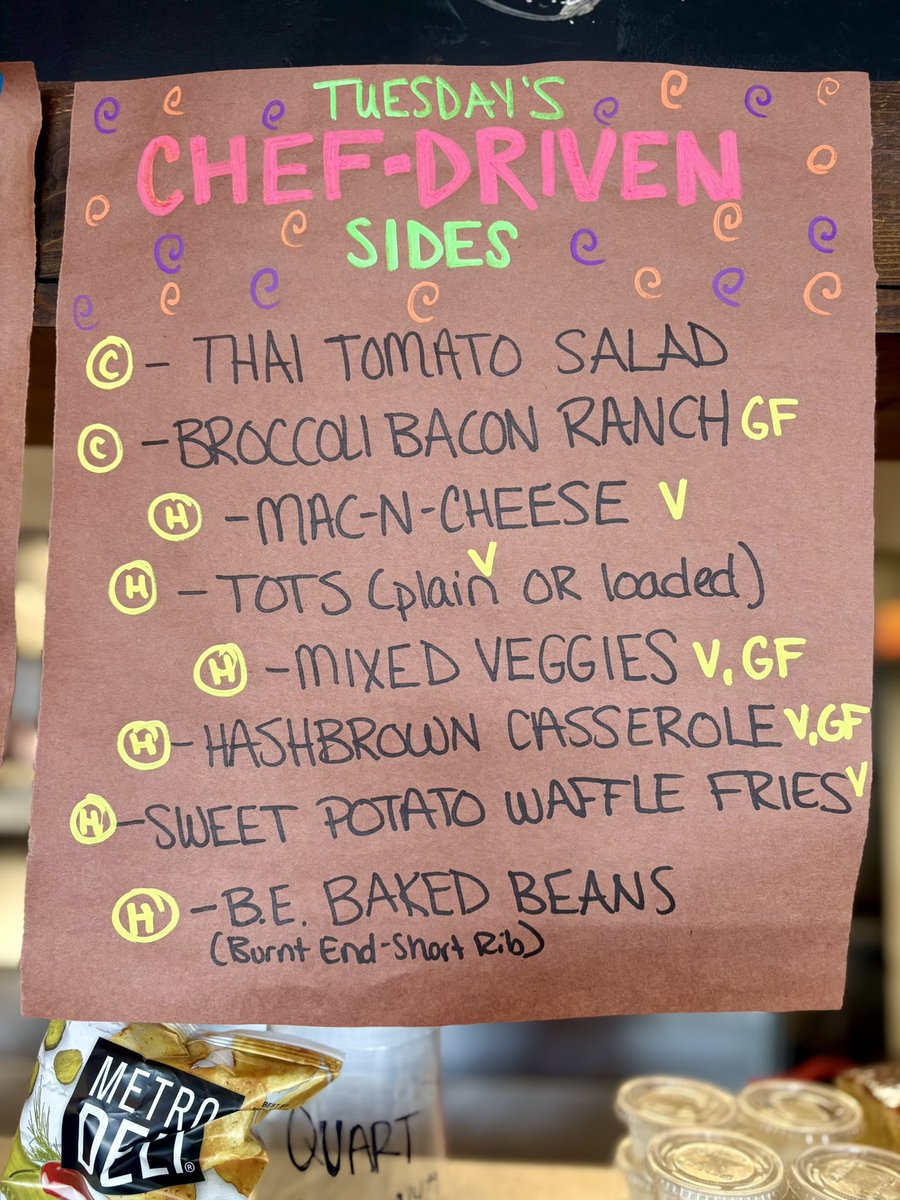 TUESDAY'S
CHEF-DRIVEN
SIDES
C - THAI TOMATO SALAD
C - BROCCOLI BACON RANCH GF
H - MAC-N-CHEESE V
V
H - TOTS (plain OR loaded)
H - MIXED VEGGIES V, GF
H - HASHBROWN CASSEROLE V, GF
H - SWEET POTATO WAFFLE FRIES V
H - B.E. BAKED BEANS
(Burnt End-Short Rib)
METRO
DELI®
QUART